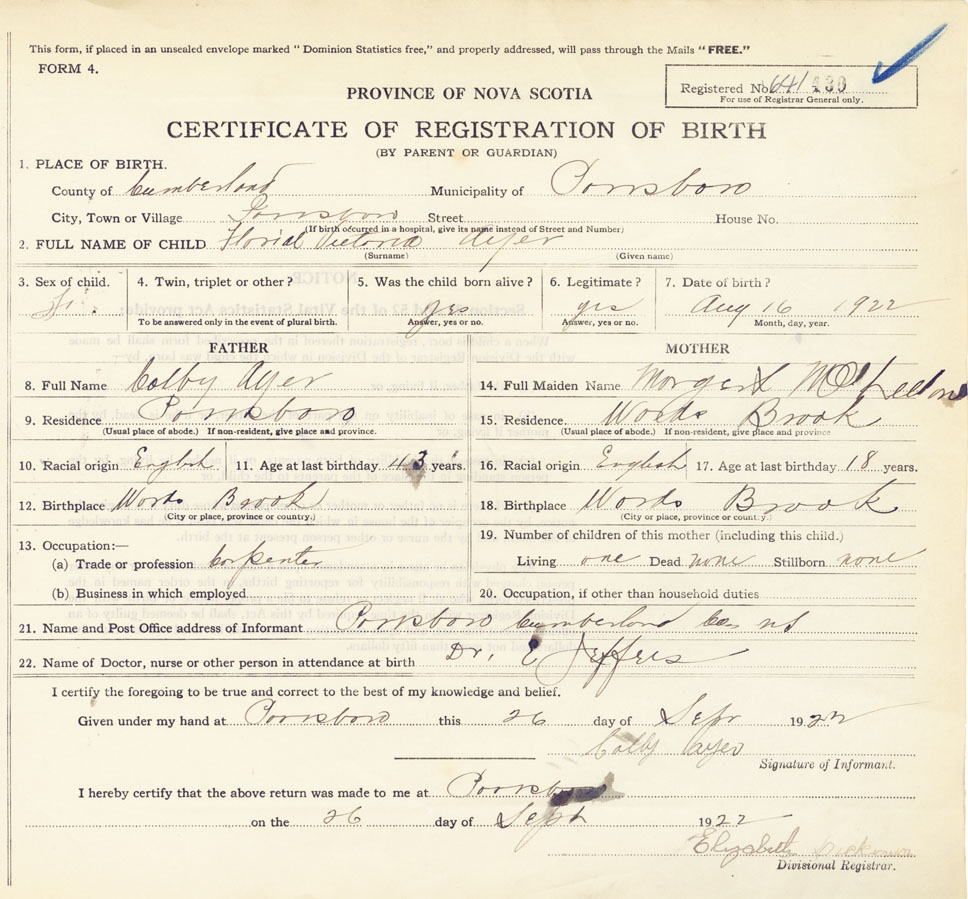 This form, if placed in an unsealed envelope marked "Dominion Statistics free," and properly addressed, will pass through the Mails "FREE."
FORM 4.
Registered No 641
For use of Registrar General only.
PROVINCE OF NOVA SCOTIA
CERTIFICATE OF REGISTRATION OF BIRTH
(BY PARENT OR GUARDIAN)
1. PLACE OF BIRTH.
County of Cumberland Municipality of Parrsboro
City, Town or Village Parrsboro Street House No.
(If birth occurred in a hospital, give its name instead of Street and Number)
2. FULL NAME OF CHILD Victoria Ayer
(Surname) (Given name)
3. Sex of child. 4. Twin, triplet or other? 5. Was the child born alive? 6. Legitimate? 7. Date of birth?
yes yes Aug 16 1922
To be answered only in the event of plural birth. Answer, yes or no. Answer, yes or no. Month, day, year.
FATHER MOTHER
8. Full Name Colby Ayer 14. Full Maiden Name
9. Residence Parrsboro 15. Residence Words Brook
(Usual place of abode.) If non-resident, give place and province. (Usual place of abode.) If non-resident, give place and province
10. Racial origin English 11. Age at last birthday 43 years. 16. Racial origin English 17. Age at last birthday 18 years.
12. Birthplace Words Brook 18. Birthplace Words Brook
(City or place, province or country.) (City or place, province or country.)
13. Occupation:— 19. Number of children of this mother (including this child.)
(a) Trade or profession Carpenter Living one Dead none Stillborn none
(b) Business in which employed 20. Occupation, if other than household duties
21. Name and Post Office address of Informant Parrsboro Cumberland Co ns
22. Name of Doctor, nurse or other person in attendance at birth Dr. E Jeffers
I certify the foregoing to be true and correct to the best of my knowledge and belief.
Given under my hand at Parrsboro this 26 day of Sepr 1922
Colby Ayer
Signature of Informant.
I hereby certify that the above return was made to me at Parrsboro
on the 26 day of Sept 1922
Elizabeth
Divisional Registrar.